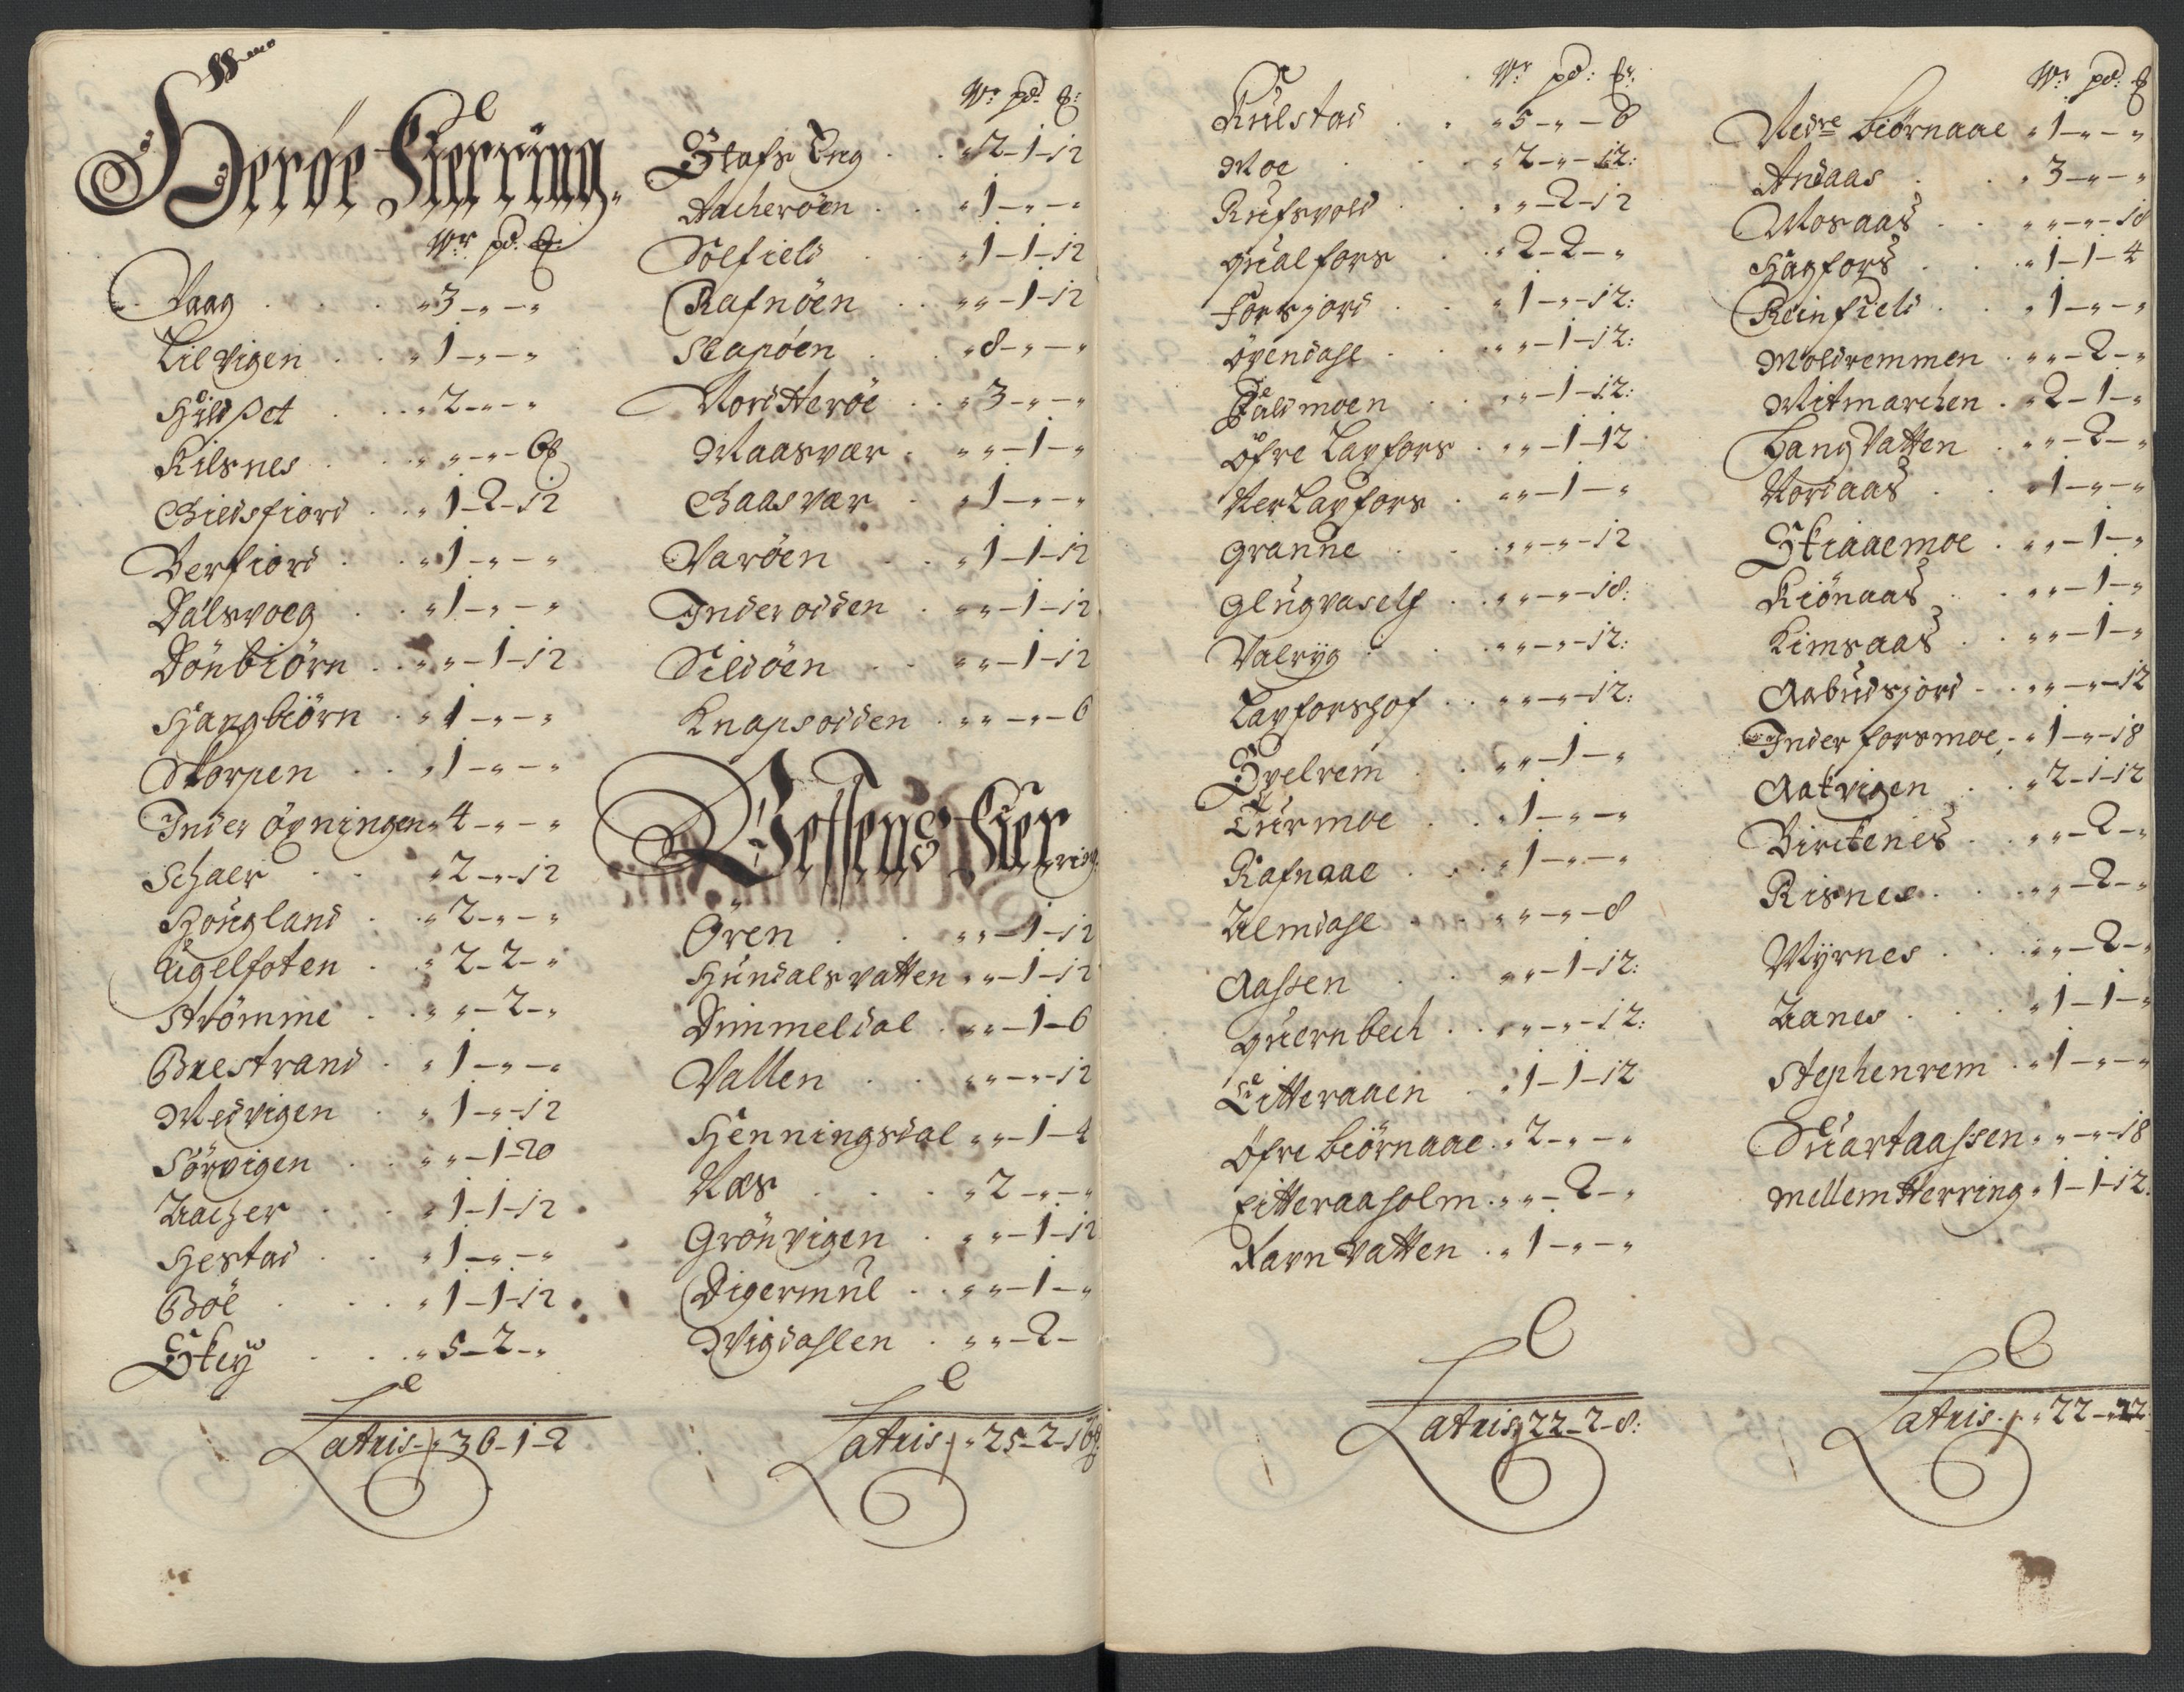 Herøe Fierring.
Wr pd: ℔:
Vaag . . . „ 3 - „ - „
Lilvigen . . „ 1 - „ - „
Huldset . . . „ 2 - „ - „
Kilsnes . . „ „ - „ - 68
Gieldsfiord . . „ 1 - 2 - 12
Berfiord . . „ 1 - „ - „
Dalsvoeg . . „ 1 - „ - „
Dönbiörn . . „ „ - 1 - 12
Hangbiörn . „ 1 - „ - „
Skorpen . . „ 1 - „ - „
Inder öxningen „ 4 - „ - „
Schaer . . „ 2 - „ - 12
Hougland . . „ 2 - „ - „
Tigelfoten . . „ 2 - 2 - „
Strömme . . „ „ - 2 - „
Bælstrand . „ 1 - „ - „
Medvigen . „ 1 - „ - 12
Sörvigen . . „ „ - 1 - 20
Aacher . . „ 1 - 1 - 12
Hestad . . „ 1 - „ - „
Böe . . . „ 1 - 1 - 12
Skey . . . „ 5 - 2 - „
Latris „ 36 - 1 - 2
Wr pd: ℔:
Stafs Eng . . „ 12 - 1 - 12
Aacheröen . . „ 1 - „ - „
Solfield . . „ 1 - 1 - 12
Rafnöen . . „ „ - 1 - 12
Slapöen . . „ 8 - „ - „
Nord Heröe . . „ 3 - „ - „
Maasvær . „ „ - 1 - „
Gaasvær . „ 1 - „ - „
Varöen . . „ 1 - 1 - 12
Inderodden . „ „ - 1 - 12
Sildöen . . „ „ - 1 - 12
Knapsodden . „ „ - „ - 6
Vefsens Fierring.
Ören . . „ „ - 1 - 12
Hundalsvatten „ „ - 1 - 12
Dimmeldal . „ „ - 1 - 6
Vallen . . „ „ - „ - 12
Henningsdal „ „ - 1 - 4
Næs . . . „ 2 - „ - „
Grönvigen . „ „ - 1 - 12
Digermul . . „ „ - 1 - „
Vigdahlen . „ „ - 2 -
Latris „ 25 - 2 - 16
Wr pd: ℔:
Kulstad . . „ 5 - „ - 6
Moe . . . „ 2 - „ - 12:
Rufsvold . . „ „ - 2 - 12
qualfors . . „ 2 - 2 - „
Forsjord . . „ 1 - „ - 12:
öyendahl . . „ „ - 1 - 12:
Fældmoen . . „ „ - 1 - 12:
öfre Laxfors . „ „ - 1 - 12
Ner Laxfors . „ „ - 1 - „
Granne . . „ „ - „ - 12
Glugvasels . „ „ - „ - 18:
Valryg . . „ „ - „ - 12:
Laxforshof . . „ „ - „ - 12:
Svelrem . . „ „ - 1 - „
Turmoe . . „ 1 - „ - „
Rafnaae . . „ 1 - „ - „
Almdahl . . „ „ - „ - 8
Aassen . . „ „ - 1 - 12:
quernbech . . „ „ - „ - 12:
Eitteraaen . „ 1 - 1 - 12
öfre biörnaae „ 2 - „ - „
Eitteraaholm „ „ - 2 - „
Favnvatten . „ 1 - „ - „
Latris 22 - 2 - 8:
Wr pd: ℔
Nedre biörnaae „ 1 - „ - „
Andaas . . „ 3 - „ - „
Mosaas . . „ „ - „ - 18
Hagfors . . „ 1 - 1 - 4
Reinfield . . „ 1 - „ - „
Moldremmen . „ „ - 2 - „
Mitmarchen . „ 2 - 1 - „
Langvatten . „ „ - 2 - „
Nordaas . . „ 1 - „ - „
Skiaaemoe . „ „ - 1 - „
Kiönaas . . „ „ - 1 - „
Kimsaas . . „ „ - 1 - „
Aabudsjord . „ „ - „ - 12
Inder forsmoe „ 1 - „ - 18
Aakvigen . . „ 2 - 1 - 12
Birckenes . „ „ - 2 - „
Risnes . . „ „ - 2 - „
Myrnes . . „ „ - 2 - „
Aanes . . „ 1 - 1 - „
Stephenrem . „ 1 - „ - „
Suartaassen „ „ - „ - 18
Mellem Herring „ 1 - 1 - 12
Latris „ 22 - „ - 22